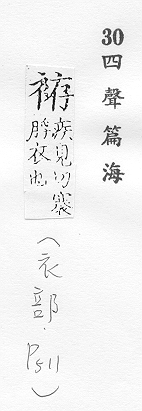 30四聲篇海
袸
疾見切褰
衣也
(衣部.P511)